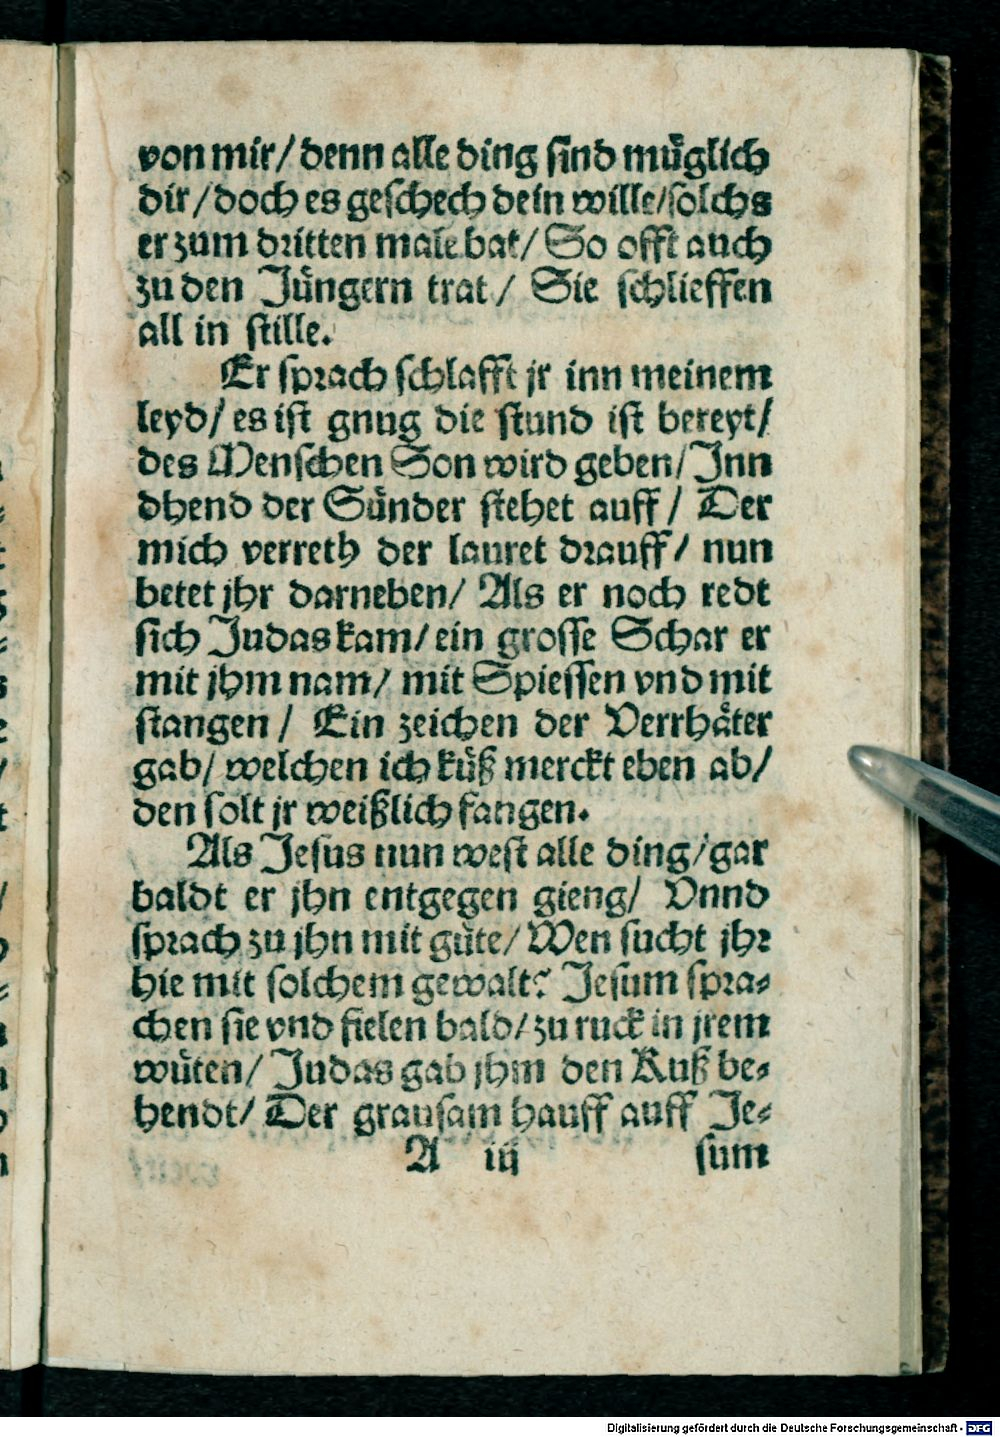 von mir/ denn alle ding sind müglich
dir/ doch es geschech dein wille/ solchs
er zum dritten male bat/ So offt auch
zu den Jüngern trat/ Sie schlieffen
all in stille.
Er sprach schlafft jr inn meinem
leyd/ es ist gnug die stund ist bereyt/
des Menschen Son wird geben/ Inn
dhend der Sünder stehet auff/ Der
mich verreth der lauret drauff/ nun
betet jhr darneben/ Als er noch redt
sich Judas kam/ ein grosse Schar er
mit jhm nam/ mit Spiessen vnd mit
stangen/ Ein zeichen der Verrhäter
gab/ welchen ich küß merckt eben ab/
den solt jr weißlich fangen.
Als Jesus nun west alle ding/ gar
baldt er jhn entgegen gieng/ Vnnd
sprach zu jhn mit güte/ Wen sucht jhr
hie mit solchem gewalt? Jesum spra-
chen sie vnd fielen bald/ zu ruck in jrem
wüten/ Judas gab jhm den Kuß be-
hendt/ Der grausam hauff auff Je-
A iij sum
Digitalisierung gefördert durch die Deutsche Forschungsgemeinschaft - DFG